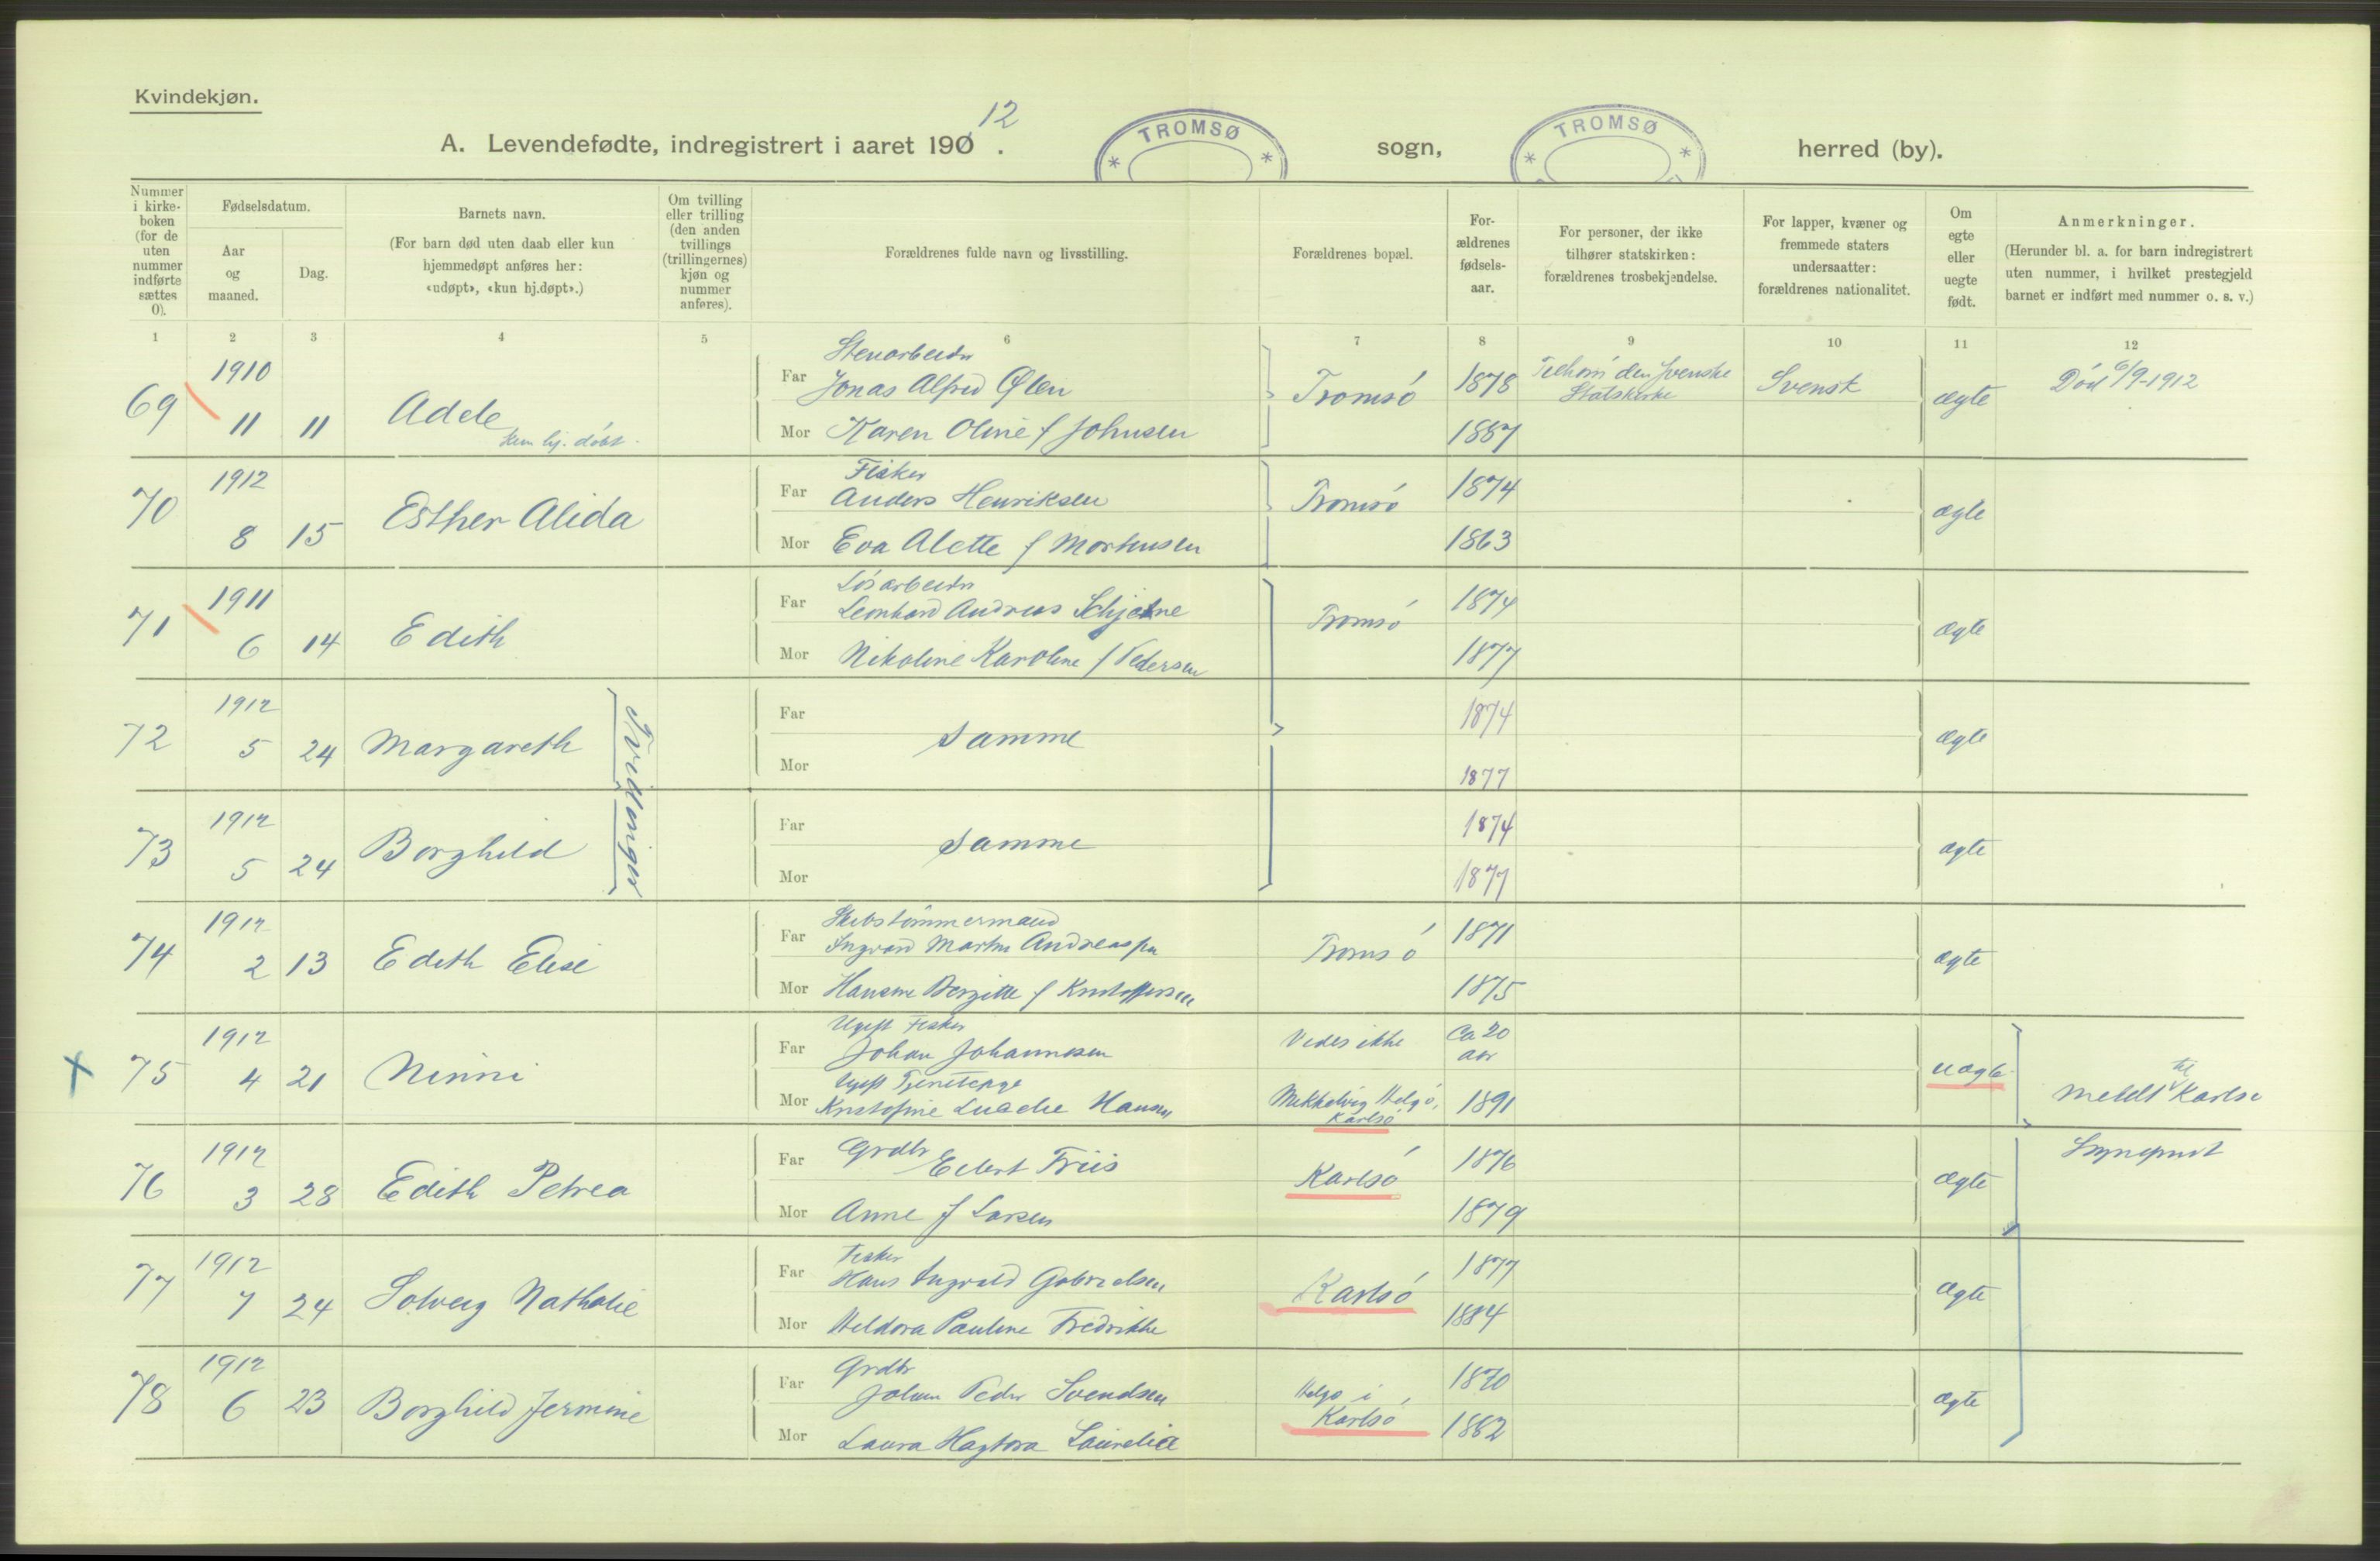 Kvindekjøn.
A. Levendefødte, indregistrert i aaret 190 12. TROMSØ sogn, TROMSØ herred (by).
Nummer i kirke-boken (for de uten nummer indførte sættes 0).
Fødselsdatum.
Aar og maaned.
Dag.
Barnets navn.
(For barn død uten daab eller kun hjemmedøpt anføres her: «udøpt», «kun hj.døpt».)
Om tvilling eller trilling (den anden tvillings (trillingernes) kjøn og nummer anføres).
Forældrenes fulde navn og livsstilling.
Forældrenes bopæl.
For-ældrenes fødsels-aar.
For personer, der ikke tilhører statskirken: forældrenes trosbekjendelse.
For lapper, kvæner og fremmede staters undersaatter: forældrenes nationalitet.
Om egte eller uegte født.
Anmerkninger.
(Herunder bl. a. for barn indregistrert uten nummer, i hvilket prestegjeld barnet er indført med nummer o. s. v.)
1 2 3 4 5 6 7 8 9 10 11 12
69 1910 11 11 Adele kun hj. døbt.
Stenarbeider
Far Jonas Alfred Tromsø 1878 den Svenske Statskirke Svensk ægte Død 6/9-1912
Mor Karen Oline f Johnsen 1887
70 1912 8 15 Esther Alida
Fisker
Far Anders Henriksen Tromsø 1874 ægte
Mor Eva Alette f Mortensen 1863
71 1911 6 14 Edith
Løsarbeider
Far Leonhard Andreas Tromsø 1874 ægte
Mor Nikoline Karoline f Pedersen 1877
72 1912 5 24 Margareth
Tvillinger
Far samme 1874 ægte
Mor 1877
73 1912 5 24 Borghild
Far samme 1874 ægte
Mor 1877
74 1912 2 13 Edith Elise
Skibstømmermand
Far Ingvard Martin Andreassen Tromsø 1871 ægte
Mor Hansine Bergitte f Kristoffersen 1875
75 1912 4 21 Ninni
Ugift Fisker
Far Johan Johannesen Vides ikke Ca 20 aar uægte
Ugift Tjenestepige
Mor Kristofine Hansen Helgø, Karlsø 1891 meldt til Karlsø
76 1912 3 28 Edith Petrea
Far Grdbr Eilert Friis Karlsø 1876 ægte
Mor Anne f Larsen 1879
77 1912 7 24 Solveig Nathalie
Fisker
Far Hans Ingvald Gabrielsen Karlsø 1877 ægte
Mor Heldora Pauline Fredrikke 1884
78 1912 6 23 Borghild Jermine
Grdbr
Far Johan Peder Svendsen Helgø i Karlsø 1870 ægte
Mor Laura Hagtora 1862